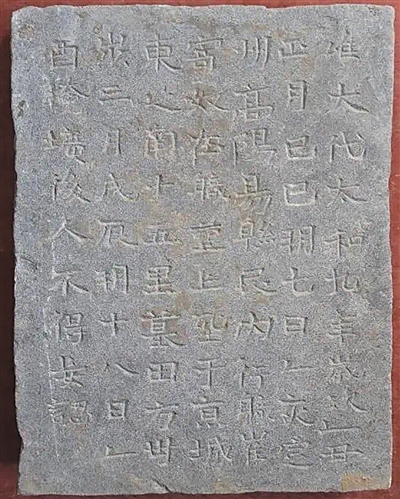 惟大代太和九年歲次乙丑
正月己巳朔七日乙亥定
州高陽易縣民內行崔
在職上塟于京城
東南十五里墓田方卅
步二月戊辰朔十八日乙
酉掩壙後人不得妄認